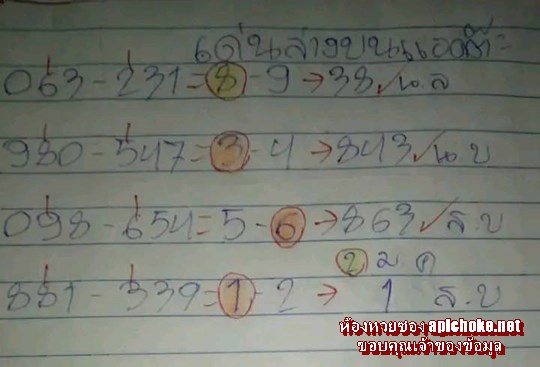 เด่นล่างบน
063-231=8-9→38/น.ล
980-547=3-4→843/น.บ
098-654=5-6→863/ล.บ
2 ม ค
881-339=1-2→ 1 ล.บ
ห้องหวยซอง apichoke.net
ขอบคุณเจ้าของข้อมูล